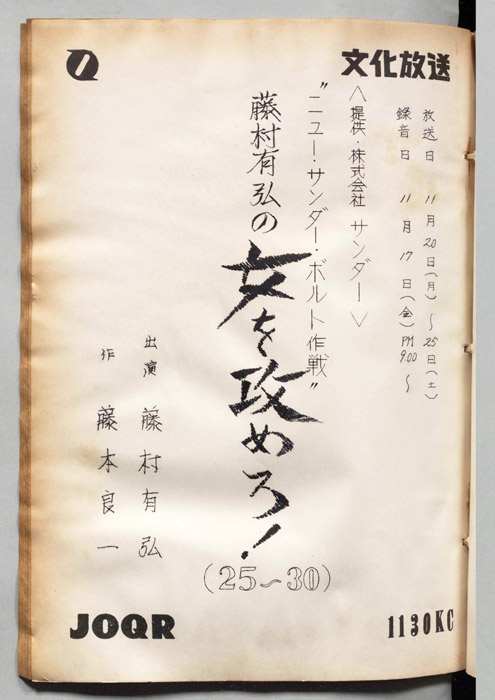 文化放送
放送日 11月20日(月)~25日(土)
録音日 11月17日(金)PM9.00~
<提供・株式会社 サンダー>
"ニュー・サンダー・ボルト作戦"
藤村有弘の女を攻めろ!
(25~30)
出演 藤村有弘
作 藤本良一
JOQR
1130KC